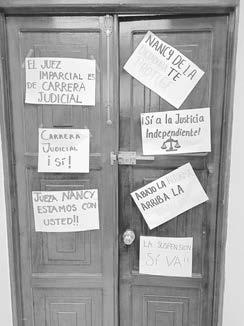 EL JUEZ
IMPARCIAL ES
DE CARRERA
JUDICIAL
CARRERA
JUDICIAL
¡SÍ!
JUEZA NANCY
ESTAMOS CON
USTED!!
NANCY DE LA
TE
¡Sí a la Justicia
Independiente!
ABAJO LA
ARRIBA LA
LA SUSPENSIÓN
SÍ VA!!